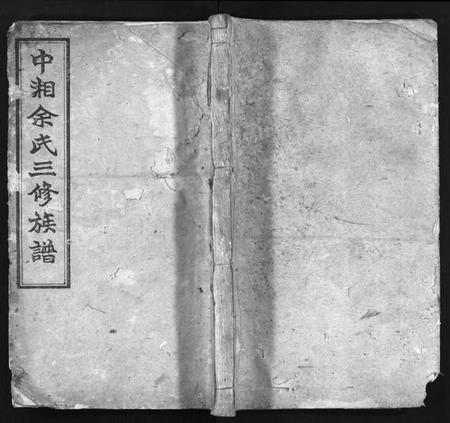 中湘余氏三修族譜